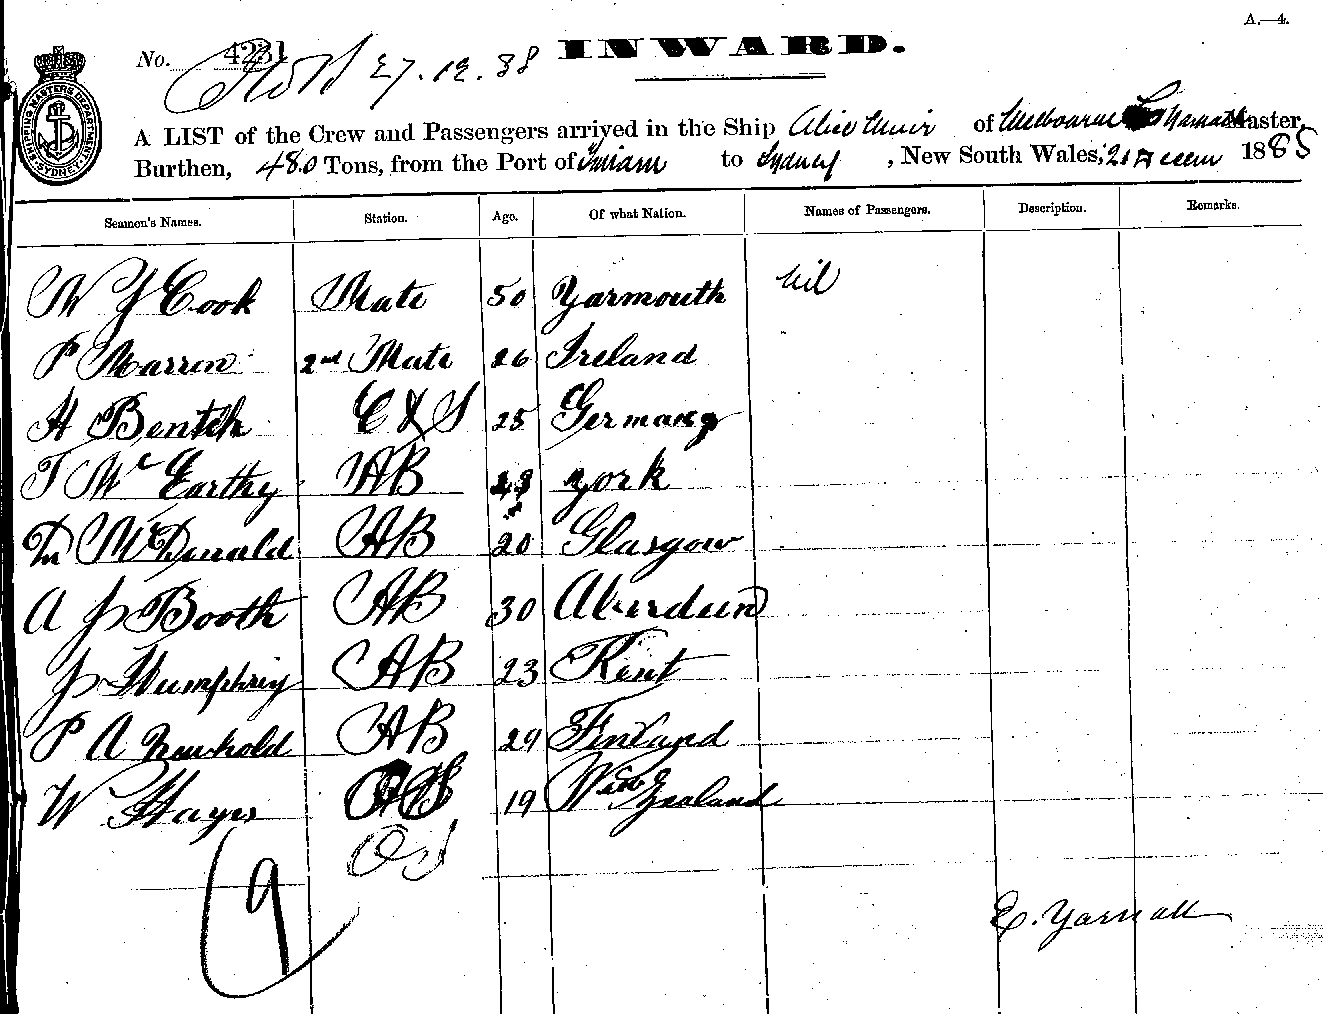 A.—4.
No. 4231 27.12.88 INWARD.
SHIPPING MASTERS DEPARTMENT SYDNEY
A LIST of the Crew and Passengers arrived in the Ship Alice Muir of Melbourne E Yarnall Master,
Burthen, 480 Tons, from the Port of to Sydney, New South Wales, 21 1885
Seamen's Names. Station. Age. Of what Nation. Names of Passengers. Description. Remarks.
W Y Cook Mate 50 Yarmouth nil
P Marren 2nd Mate 26 Ireland
H Benteh C & S 25 Germany
T McCarthy AB york
McDonald AB 20 Glasgow
A J Booth AB 30 Aberdeen
J Humphrey AB 23 Kent
P A Newhold AB 29 Finland
W Hayes OS 19 New Zealand
9
E. Yarnall